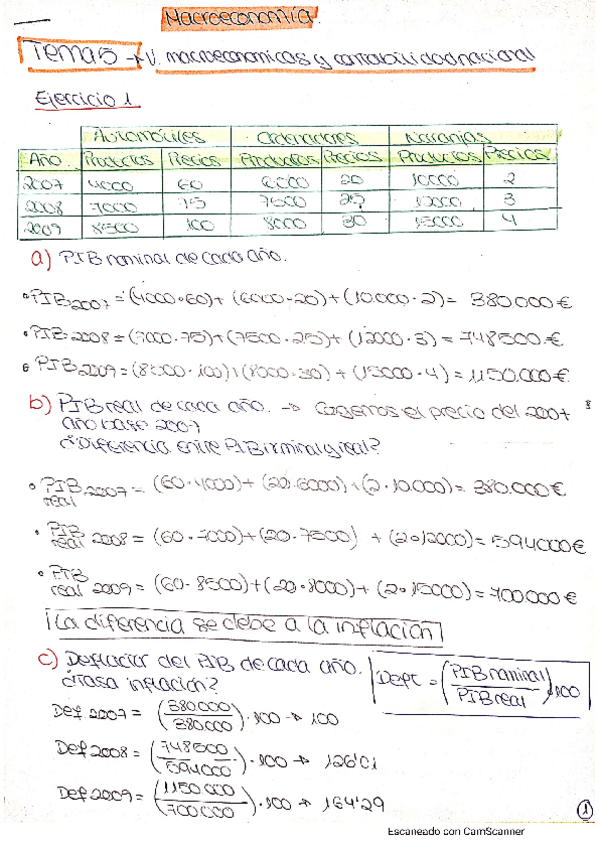 Macroeconomía.
Tema 5 → V. macroeconomicas y contabilidad nacional
Ejercicio 1.
Automóviles Ordenadores Naranjas
Año Productos Precios Productos Precios Productos Precios
2007 4000 60 6000 20 10000 2
2008 7000 75 7500 25 12000 3
2009 8500 100 8000 30 15000 4
a) PIB nominal de cada año.
• PIB 2007 = (4000·60) + (6000·20) + (10.000·2) = 380.000€
• PIB 2008 = (7000·75) + (7500·25) + (12000·3) = 748500.€
• PIB 2009 = (8500·100) + (8000·30) + (15000·4) = 1150.000€.
b) PIB real de cada año. → Cogemos el precio del 2007
año base 2007
¿Diferencia entre PIB nominal y real?
• PIB real 2007 = (60·4000) + (20·6000) + (2·10.000) = 380.000€
• PIB real 2008 = (60·7000) + (20·7500) + (2·12000) = 594000€
• PIB real 2009 = (60·8500) + (20·8000) + (2·15000) = 700000€
¡La diferencia se debe a la inflación!
c) Deflactor del PIB de cada año.
¿Tasa inflación?
= (PIB nominal / PIB real) · 100
Def 2007 = (380.000 / 380.000) · 100 → 100
Def 2008 = (748500 / 594000) · 100 → 126'01
Def 2009 = (1150000 / 700000) · 100 → 164'29
1
Escaneado con CamScanner